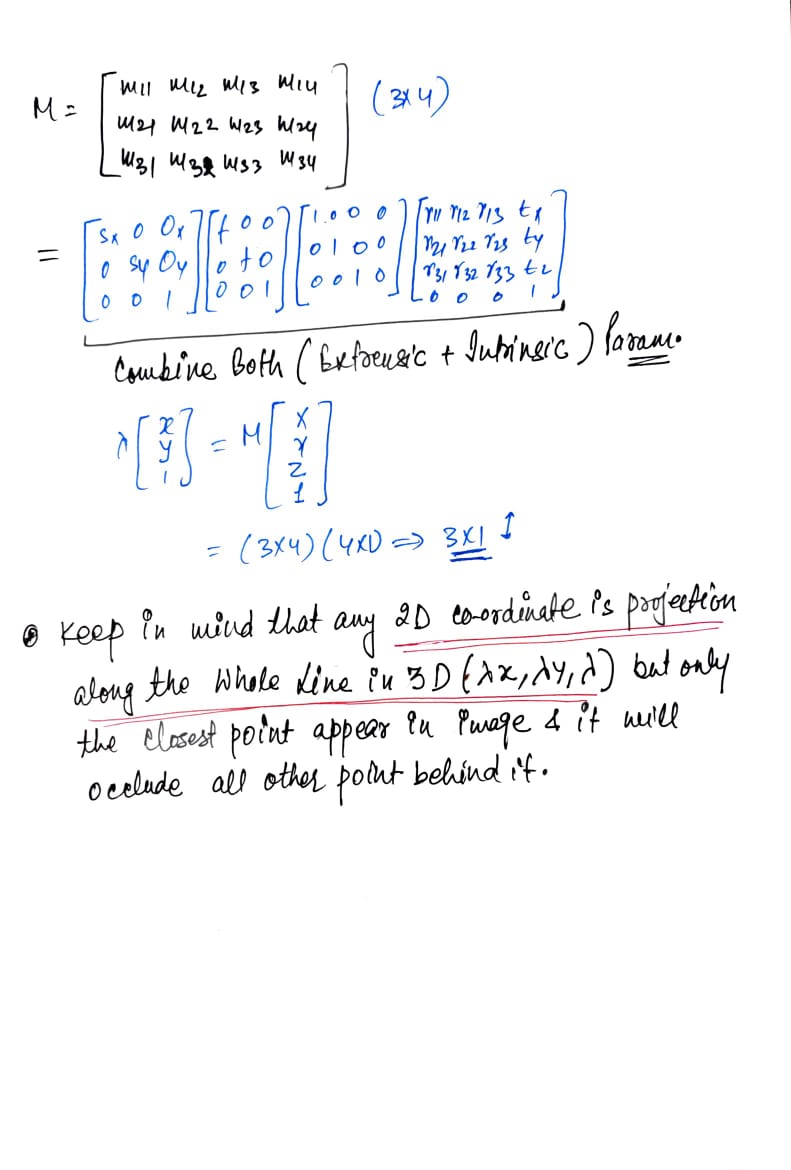 M = [ m11 m12 m13 m14 ] (3x4)
m21 m22 m23 m24
m31 m32 m33 m34
= [ Sx 0 Ox ] [ f 0 0 ] [ 1.0 0 0 ] [ r11 r12 r13 tx ]
0 Sy Oy 0 f 0 0 1 0 0 r21 r22 r23 ty
0 0 1 0 0 1 0 0 1 0 r31 r32 r33 tz
0 0 0 1
Combine Both (Extrensic + Intrinsic) Param.
λ [ x y 1 ] = M [ X Y Z 1 ]
= (3x4) (4x1) ⇒ 3x1 ↕
Keep in mind that any 2D co-ordinate is projection
along the whole line in 3D (λx, λy, λ) but only
the closest point appear in image & it will
occlude all other point behind it.